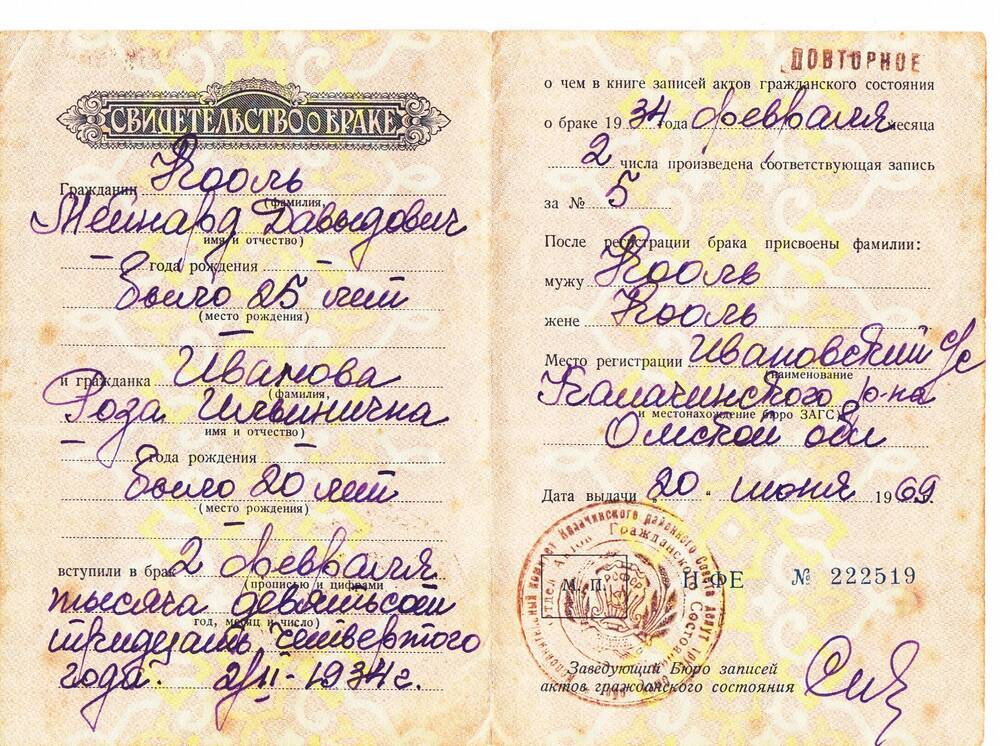 СВИДЕТЕЛЬСТВО О БРАКЕ
Гражданин Кооль
(фамилия,
Мейнард Давыдович
имя и отчество)
— года рождения —
было 25 лет
(место рождения)
—
и гражданка Иванова
(фамилия,
Роза Ильинична
имя и отчество)
— года рождения —
было 20 лет
(место рождения)
—
вступили в брак 2 февраля
(прописью и цифрами
тысяча девятьсот
год, месяц и число)
тридцать четвертого
года. 2/II-1934 г.
ПОВТОРНОЕ
о чем в книге записей актов гражданского состояния
о браке 1934 года февраля месяца
2 числа произведена соответствующая запись
за № 5
После регистрации брака присвоены фамилии:
мужу Кооль
жене Кооль
Место регистрации Ивановский с/с
(наименование
Калачинского р-на
и местонахождение бюро ЗАГС)
Омской обл
Дата выдачи "20" июня 1969
М. П.
II-ФЕ № 222519
Заведующий Бюро записей
актов гражданского состояния